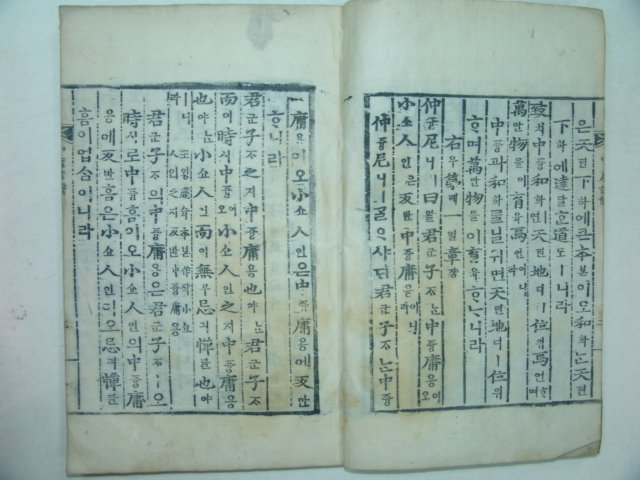 은天텬下하에큰本본이오和화ᄂᆞᆫ天텬
下하에達달ᄒᆞᆫ道도ㅣ니라
致치中즁和화하면天텬地디ㅣ位위焉언하며
萬만物믈이育육焉언이니라
中즁과和화ᄅᆞᆯ닐뉘면天텬地디ㅣ位위
ᄒᆞ며萬만物믈이育육ᄒᆞᄂᆞ니라
右우第뎨一일章쟝
仲즁尼니ㅣ曰왈君군子ᄌᆞᄂᆞᆫ中즁庸용이오
小쇼人인은反반中즁庸용이니라
仲즁尼니ㅣᄀᆞᆯᄋᆞ샤ᄃᆡ君군子ᄌᆞᄂᆞᆫ中즁
庸용이오小쇼人인은中즁庸용에反반
ᄒᆞ니라
君군子ᄌᆞ之지中즁庸용也야ᄂᆞᆫ君군子ᄌᆞ
而이時시中즁이오小쇼人인之지中즁庸용
也야ᄂᆞᆫ小쇼人인而이無무忌긔憚탄也야
ㅣ니라王왕肅슉本본作작小쇼
人인之지反반中즁庸용
君군子ᄌᆞ의中즁庸용은君군子ᄌᆞㅣ오
時시로中즁홈이오小쇼人인의中즁庸
용에反반홈은小쇼人인이오忌긔憚탄
홈이업슴이니라